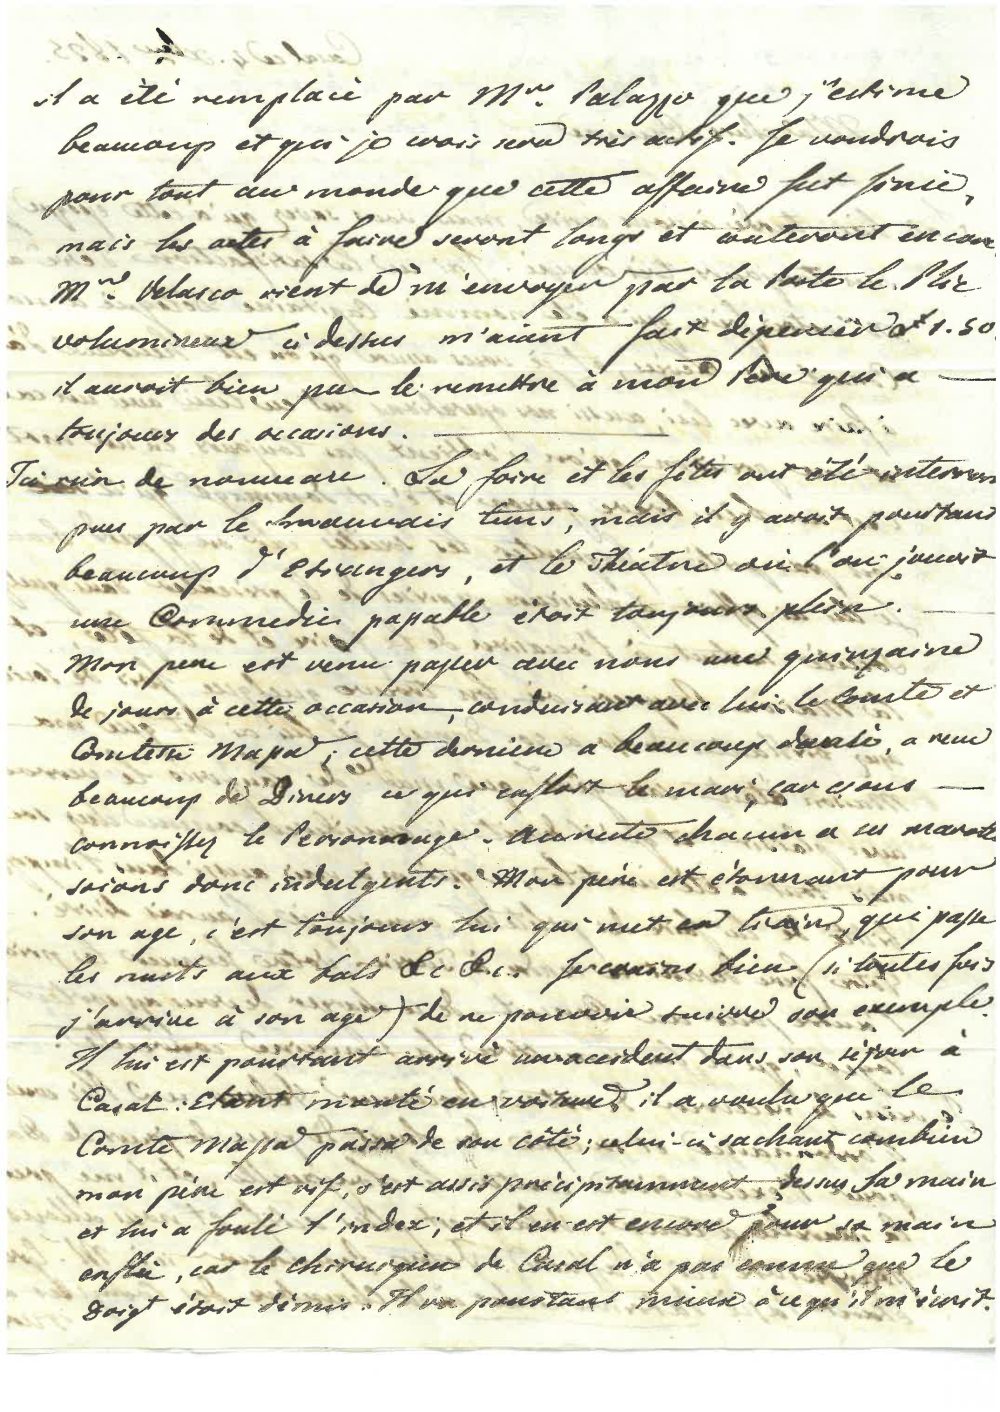 il a été remplacé par Mr. Palazzo que j'estime
beaucoup et qui je crois sera très actif. Je voudrois
pour tout au monde que cette affaire fut finie,
mais les actes à faire seront longs et couteront encore
Mr. Velasco vient de m'envoyer par la Poste le Plic
volumineux ci dessus m'aiant fait dépenser 1.50
il auroit bien pu le remettre à mon Pere qui a
toujours des occasions.
Ici rien de nouveau. La foire et les fêtes ont été interrom
pues par le mauvais tems, mais il y avoit pourtant
beaucoup d'Etrangers, et le Théatre où l'on jouoit
une Commedie papable étoit toujours plein.
Mon pere est venu passer avec nous une quinzaine
de jours à cette occasion, conduisant avec lui le Comte et
Comtesse Massa; cette derniere a beaucoup dansé, a reçu
beaucoup de Diners ce qui enfloit le mari, car vous
connoissez le Personnage. Au reste chacun a ses marotte
soions donc indulgents. Mon père est étonnant pour
son age, c'est toujours lui qui met en train, qui passe
les nuits aux bals &c &c. Je crains bien (si toutes fois
j'arrive à son age) de ne pouvoir suivre son exemple.
Il lui est pourtant arrivé un accident dans son séjour à
Casal: Etant monté en voiture, il a voulu que le
Comte Massa passa de son côté; celui-ci sachant combien
mon père est vif, s'est assis précipitamment dessus sa main
et lui a foulé l'index; et il en est encore pour sa main
enflée, car le chirurgien de Casal n'a pas connu que le
Doigt étoit démis. Il va pourtant mieux à ce qu'il m'écrit.